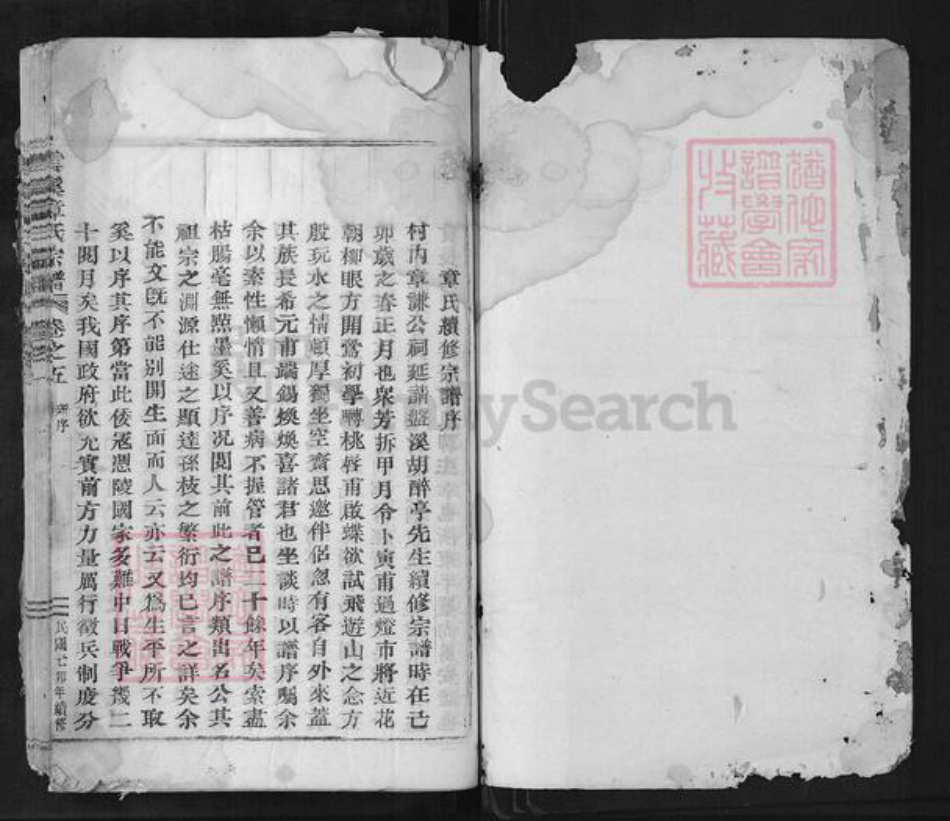 章氏續修宗譜序
村內章謙公祠延請盤溪胡醉亭先生續修宗譜時在己
卯歲之春正月也眾芳拆甲月令卜寅甫過燈市將近花
朝柳眼方開鶯初學囀桃唇甫啟蝶欲試飛遊山之念方
殷玩水之情頗厚獨坐空齋思邀伴侶忽有客自外來蓋
其族長希元甫端錫煥煥喜諸君也坐談時以譜序囑余
余以素性懶惰且又善病不握管者已二十餘年矣索盡
枯腸毫無點墨奚以序况閱其前此之譜序類出名公其
祖宗之淵源仕途之顯達孫枝之繁衍均已言之詳矣余
不能文旣不能別開生面而人云亦云又爲生平所不取
奚以序其序第當此倭寇憑陵國家多難中日戰爭幾二
十閱月矣我國政府欲充實前方力量厲行徵兵制度分
章氏宗譜 卷之五 序
民國己卯年續修
FamilySearch
猶他家譜學會收藏